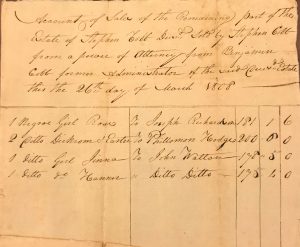 Account of Sale of the Remaining part of the
Estate of Stephen Cobb Decd. Sold by Stephen Cobb
from a power of Attorney from Benjamin
Cobb former Administrator of the said Decd. Estate
this the 26th day of March 1808
1 Negroe Girl Rose To Joseph Richardson 481 1 6
2 Ditto Dickson & To Philemon Hodges 200 8 0
1 Ditto Girl Jinna To John Watton 178 5 0
1 Ditto do Hannor " Ditto Ditto 178 4 0